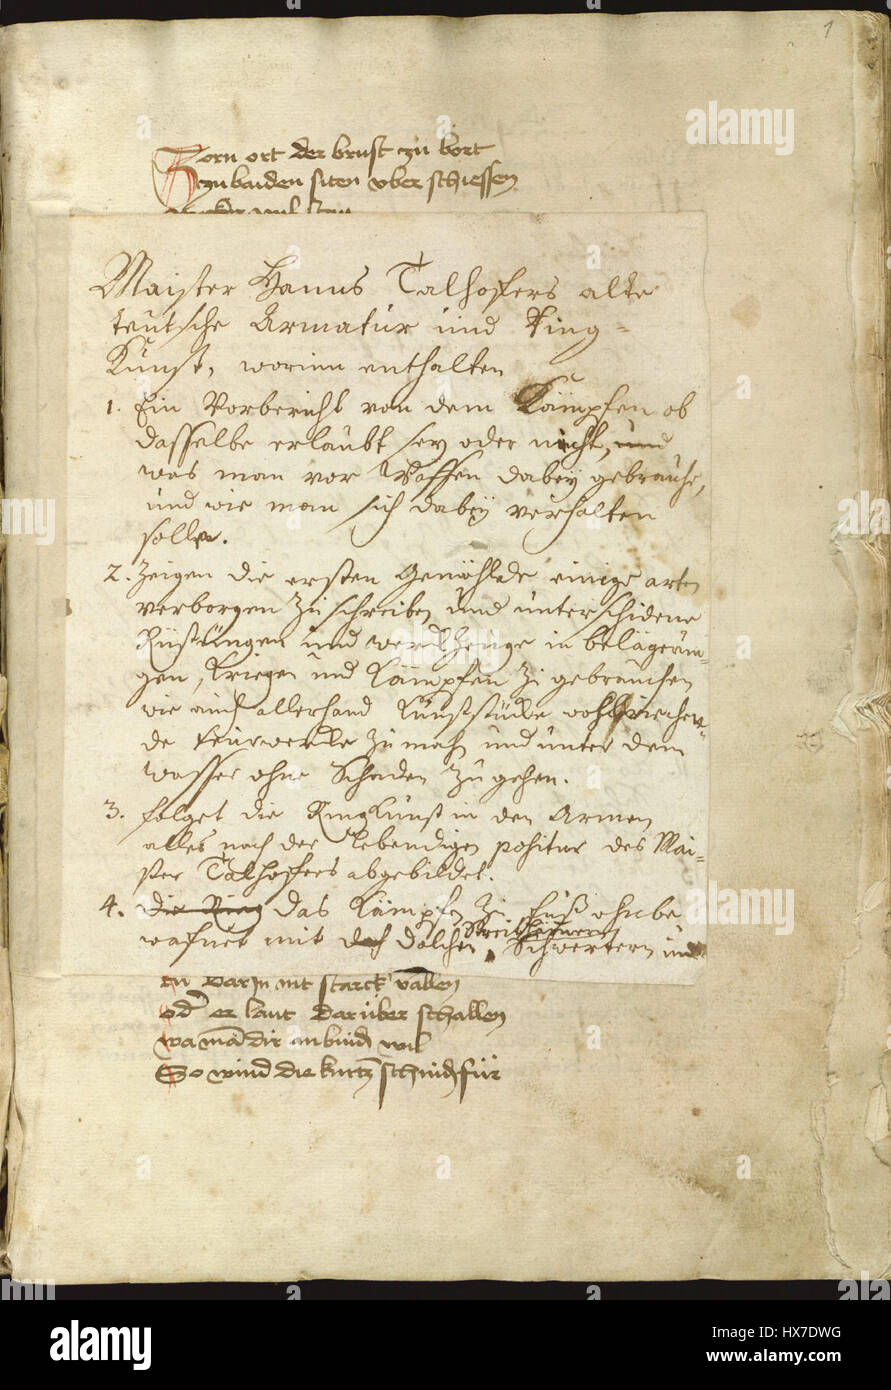 1
Zorn ort der brust zü bort
zu baiden siten vber schiessen
Maister Hanns Talhofers alte
teutsche Armatur und Ring-
Kunst, worinn enthalten
1. Ein Vorbericht von dem Kämpfen ob
dasselbe erlaubt sey oder nicht, und
was man vor Waffen dabey gebrauche,
und wie man sich dabey verhalten
solle.
2. Zeigen die ersten Gemählde einige arten
verborgen zu schreiben und unterschidene
Rüstungen und werckzeuge in belägerun-
gen, Kriegen und Kämpfen zu gebrauchen
wie auch allerhand Kunststücke wohlriechen-
de feurwercke zu mach und unter dem
wasser ohne Schaden zu gehen.
3. folget die Ringkunst in den Armen
alles nach der lebendigen positur des Mai-
ster Talhofers abgebildet.
4. die Ring das Kämpfen zu fuß ohnbe
wafnet mit dolchen, Schwertern und
var in nit starck vallen
od er laut darüber schallen
wa ma dir anbind wil
So wind die kurtz schnid für
alamy
Image ID: HX7DWG
www.alamy.com